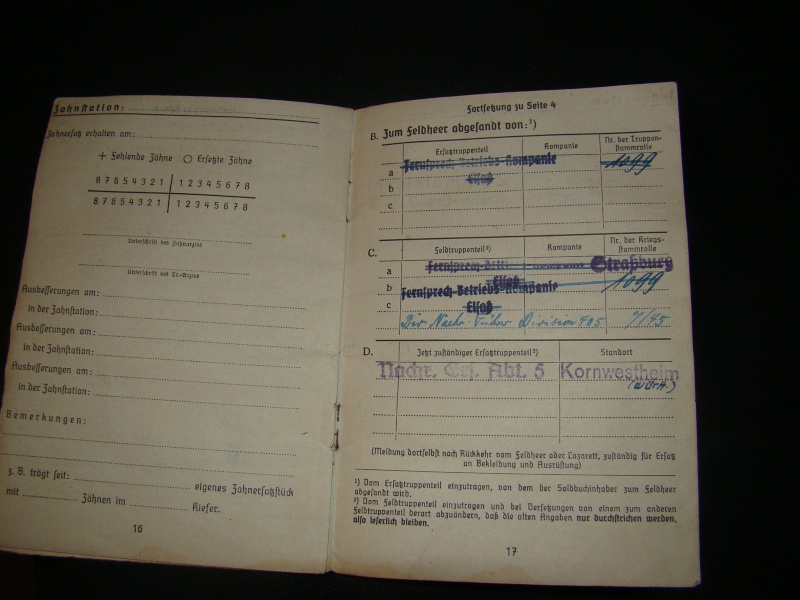 Zahnstation:
Zahnersatz erhalten am:
+ Fehlende Zähne ○ Ersetzte Zähne
8 7 6 5 4 3 2 1 | 1 2 3 4 5 6 7 8
8 7 6 5 4 3 2 1 | 1 2 3 4 5 6 7 8
Unterschrift des Zahnarztes
Unterschrift des Tr.-Arztes
Ausbesserungen am:
in der Zahnstation:
Ausbesserungen am:
in der Zahnstation:
Ausbesserungen am:
in der Zahnstation:
Bemerkungen:
z. B. trägt seit: eigenes Zahnersatzstück
mit Zähnen im Kiefer.
16
Fortsetzung zu Seite 4
B. Zum Feldheer abgesandt von:¹)
Ersatztruppenteil Kompanie Nr. der Truppen-
stammrolle
a Fernsprech-Betriebs-Kompanie 1099
b Elsaß
c
C. Feldtruppenteil²) Kompanie Nr. der Kriegs-
stammrolle
a Fernsprech- Straßburg
b Elsaß 1099
Fernsprech-Betriebs-Kompanie
c Elsaß
Div. Nachr. Division 405 7/45
D. Jetzt zuständiger Ersatztruppenteil²) Standort
Nachr. Ers. Abt. 5 Kornwestheim
(Württ.)
(Meldung dortselbst nach Rückkehr vom Feldheer oder Lazarett, zuständig für Ersatz
an Bekleidung und Ausrüstung)
¹) Vom Ersatztruppenteil einzutragen, von dem der Soldbuchinhaber zum Feldheer
abgesandt wird.
²) Vom Feldtruppenteil einzutragen und bei Versetzungen von einem zum anderen
Feldtruppenteil derart abzuändern, daß die alten Angaben nur durchstrichen werden,
also leserlich bleiben.
17